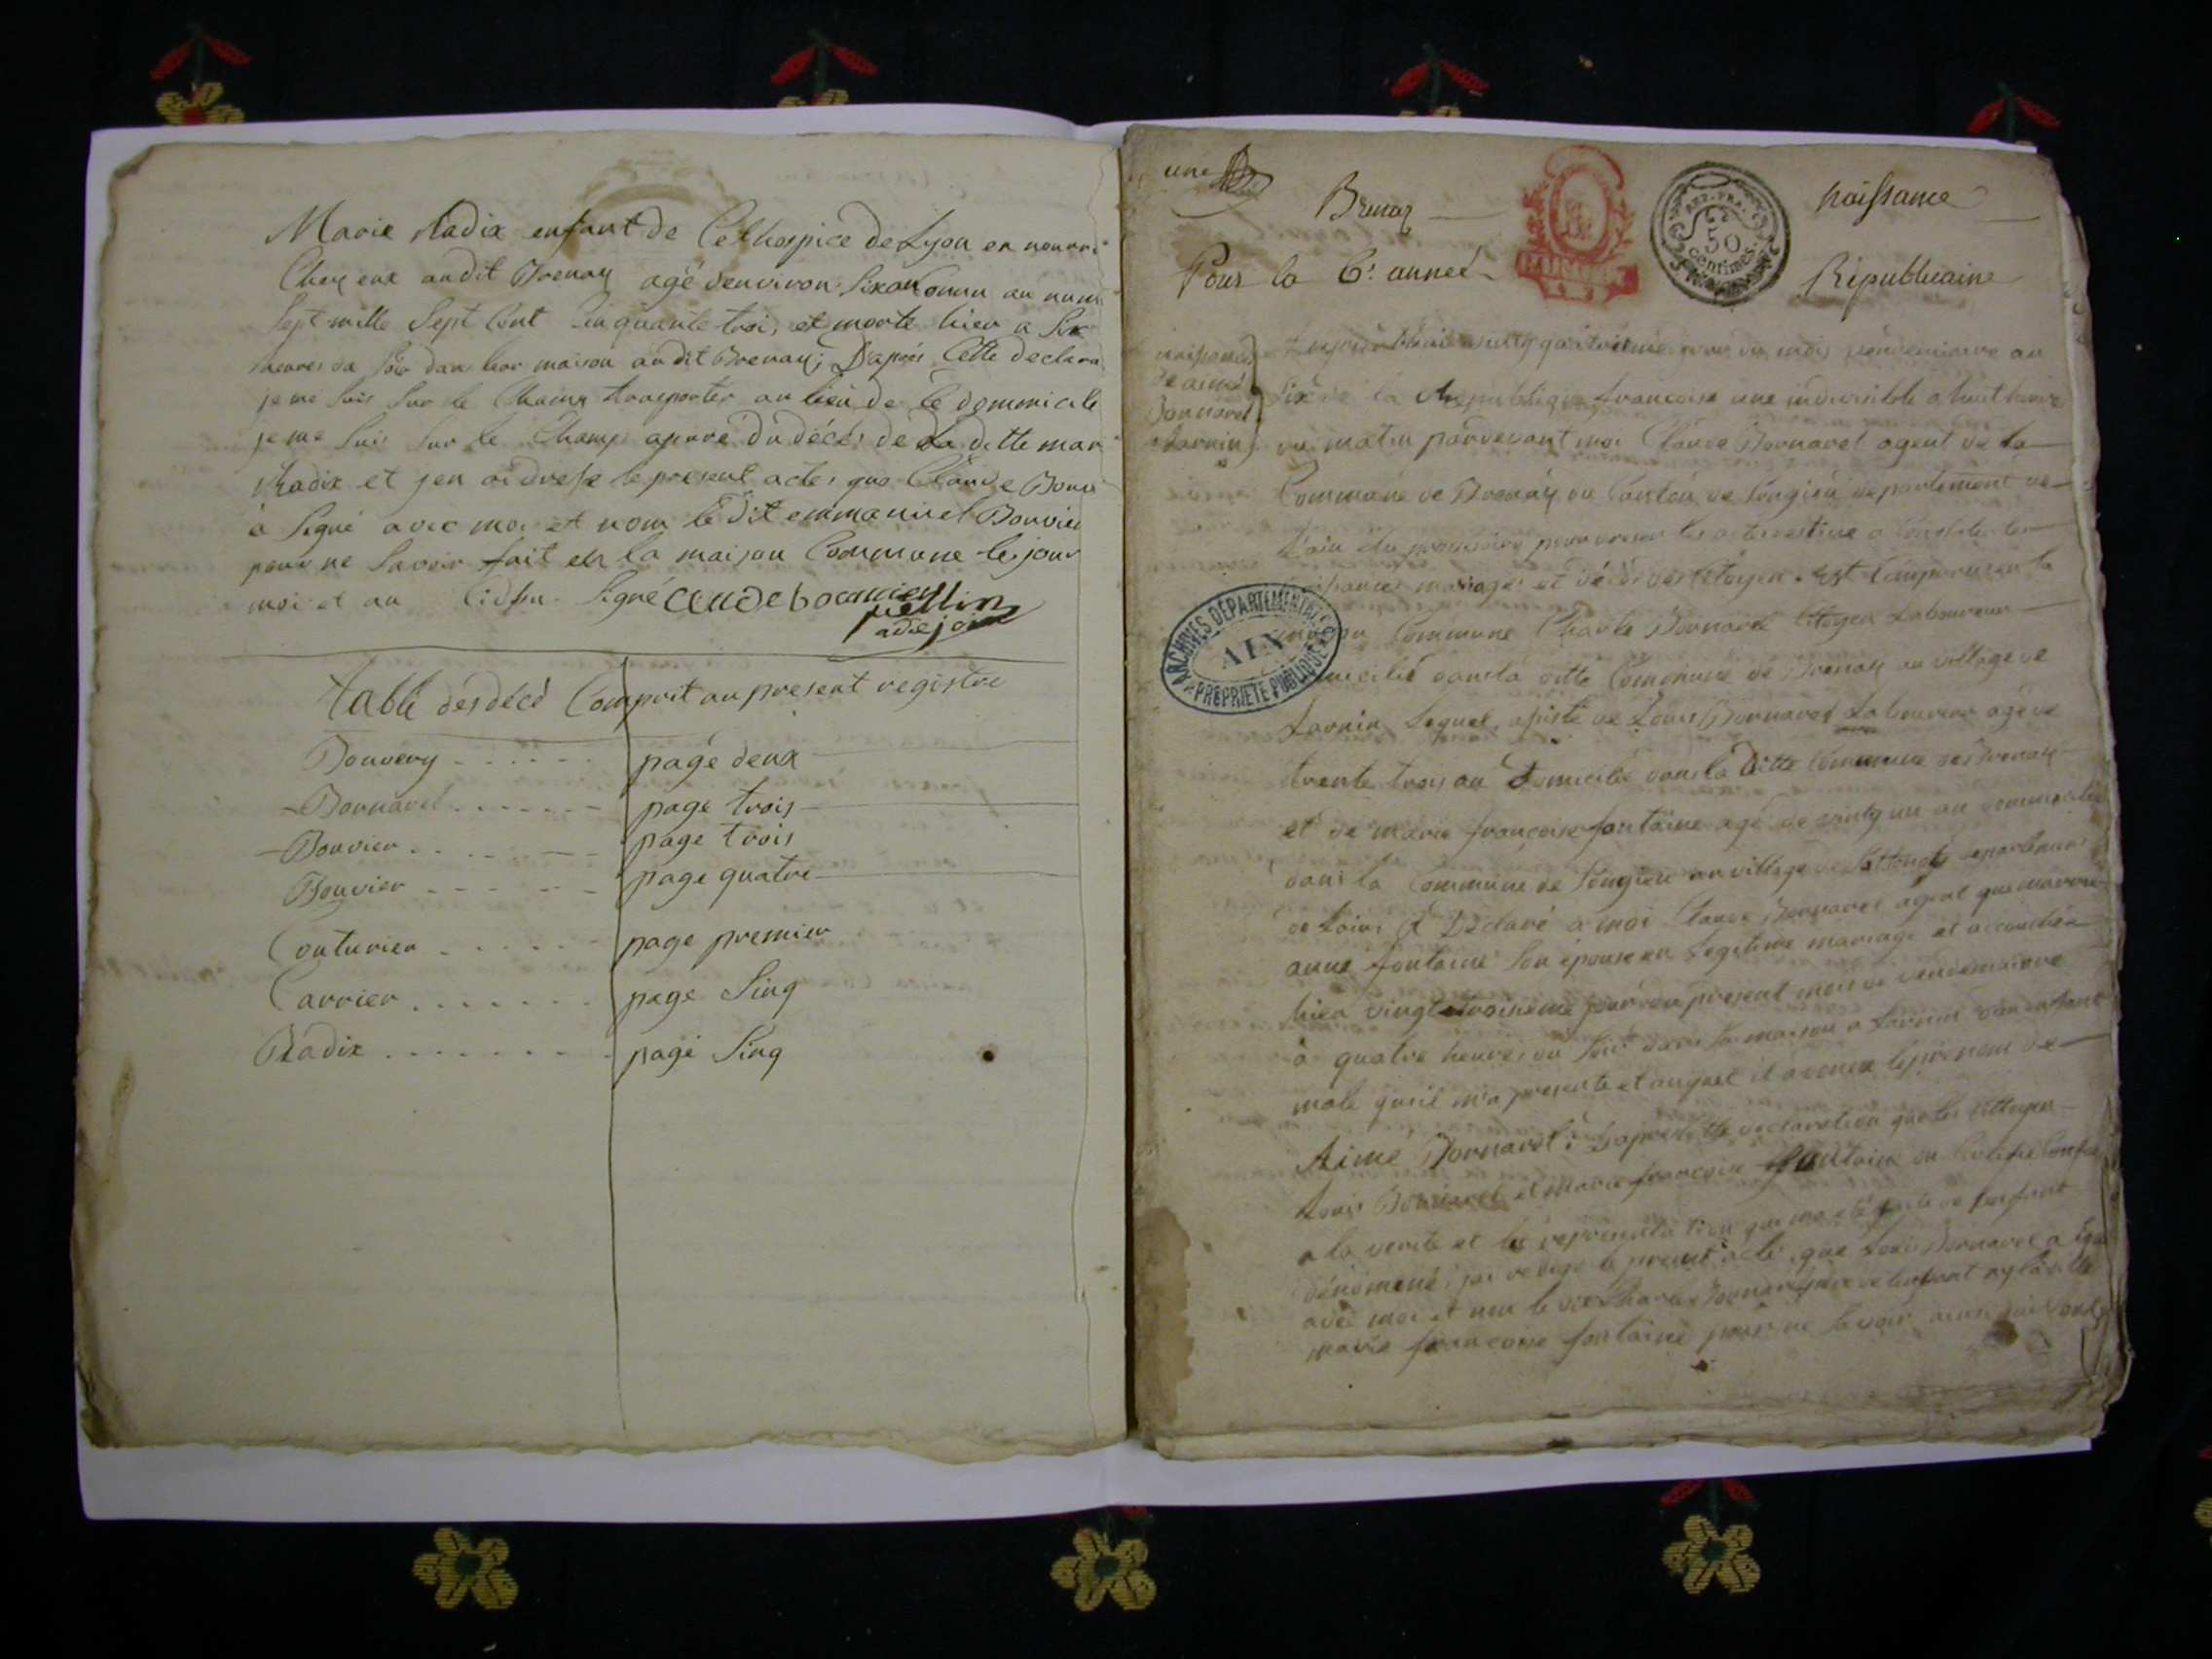 Marie Radix enfant de Cethospice de Lyon en nourri
Chez eux audit Brenay agé denviron Sixan Connu au num
Sept mille Sept Cent Cinquante trois et morte hier a Six
heures du Soir dans leur maison au dit Brenay; D'aprés Cette declara
je me Suis Sur le Champ transporter au lieu de Ce dommicile
je me Suis Sur le Champ apuré du décés de La ditte mar
Radix et jen ai dressé le present acte, que Claude Bouvi
à Signé avec moi et nom le Dit emmanuel Bouvier
pour ne Savoir fait en la maison Commune le jour
moi et an Cidssu. Signé Claude bouvier
adejoin
table des décé Comprit au present registre
Bouvery page deux
Bornarel page trois
Bouvier page trois
Bouvier page quatre
Couturier page premier
Carrier page Sinq
Radix page Sinq
une
Brenaz
Naissance
REP. FRA.
50
centimes
Pour la 6e année
Républicaine
naissance
de aimé
Bornarel
a Larnin
jour du mois vendemiaire an
Six de la Republique francoise une indivisible a huit heure
du matin pardevant moi Claude Bornarel agent de la
Commune de Brenaz du Canton de Songieu departement de
L'ain elu pour dresser les actes destiné a Constater les
naissances mariages et décés des Citoyen. Est Comparu en la
maison Commune Charle Bornarel Citoyen Laboureur
domicilié dans la ditte Commune de Brenaz au village de
Larnin Lequel assisté de Louis Bornarel Laboureur agé de
trente trois an Domicilié dans la Ditte Commune de Brenaz
et de marie francoise fontaine agé de vintg un an dommicilié
dans la Commune de Songieu au village de
à Déclaré a moi Claude Bornarel agent que
anne fontaine Son épouse en Legitime mariage et accouchée
hier vingt troisieme jour du present mois de vendemiaire
à quatre heures du Soir dans Sa maison a Larnin d'un enfant
male quil m'a presenté et auquel il a donné le prénom de
Aimé Bornarel; Daprés Cette declaration que les Cittoyen
Louis Bornarel et marie francoise fontaine on Certifié Conforme
a la verité et la représentation qui ma été faite de Lenfant
dénommé, jai redigé le present acte, que Louis Bornarel a Signé
avec moi et nom le dit Charle Bornarel pere de lenfant ny la ditte
marie francoise fontaine pour ne Savoir
ARCHIVES DEPARTEMENTALES
AIN
PROPRIETE PUBLIQUE